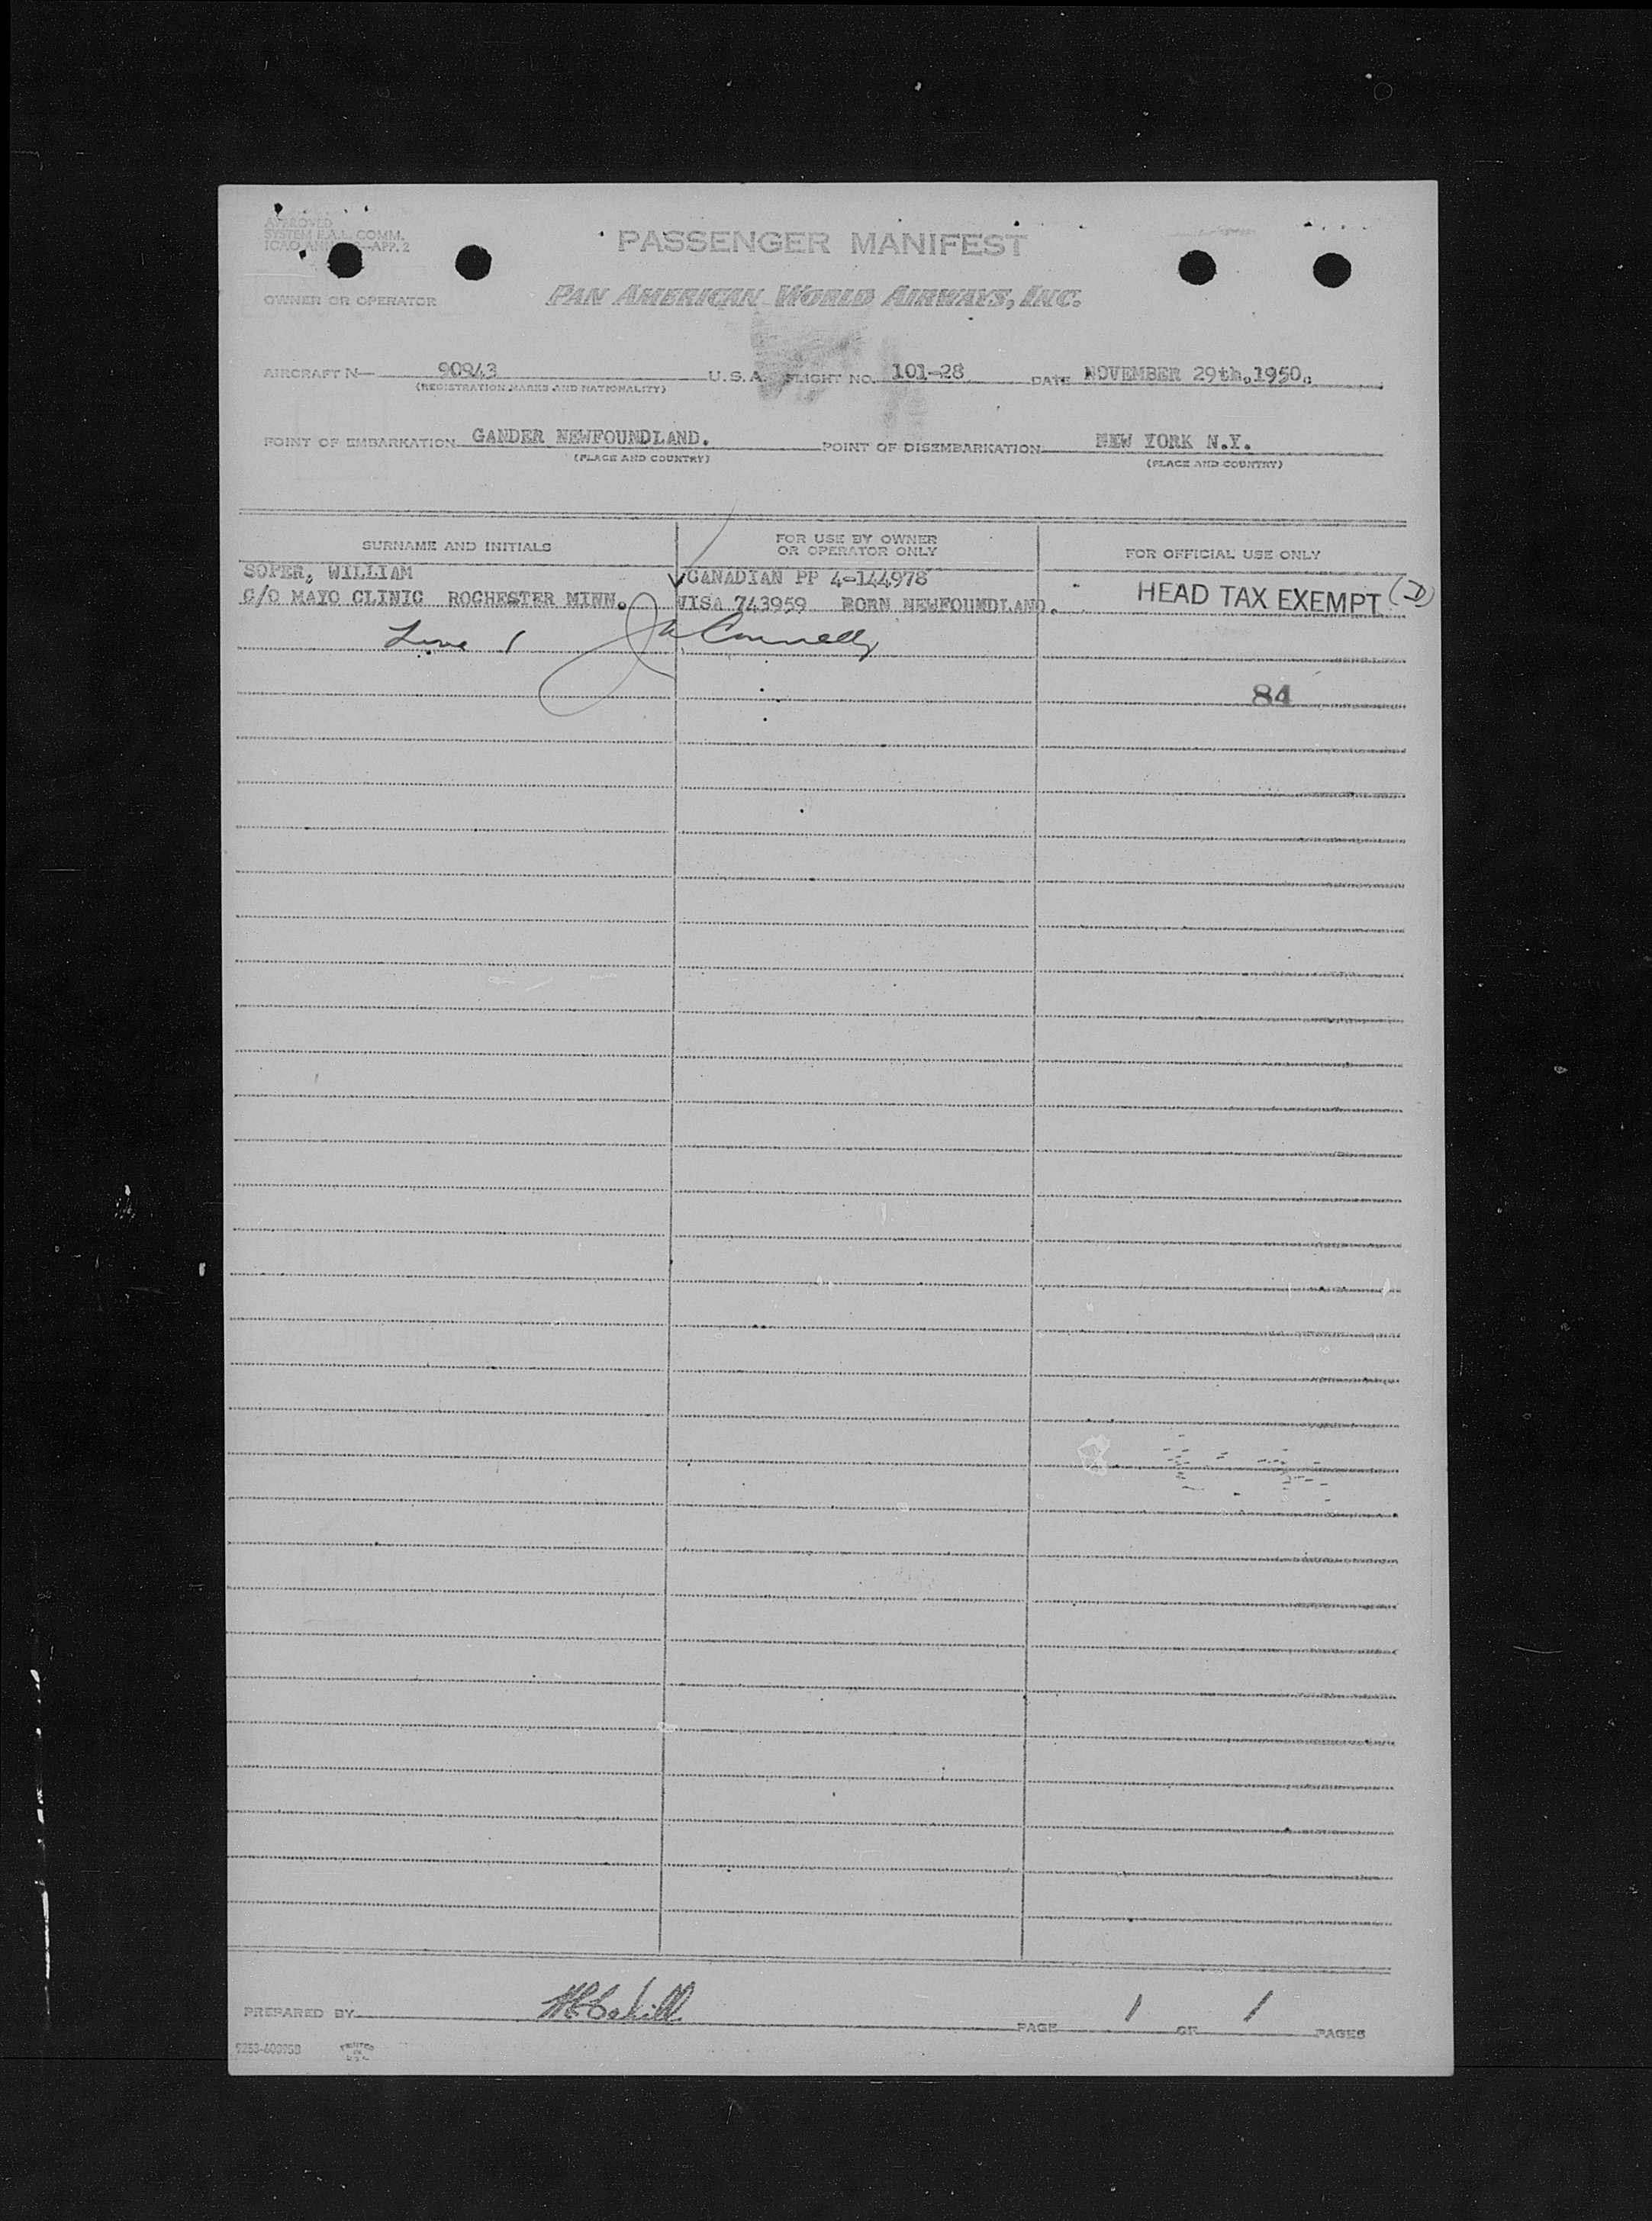 APPROVED
SYSTEM F.A.L. COMM.
ICAO ANNEX 9—APP. 2
PASSENGER MANIFEST
OWNER OR OPERATOR PAN AMERICAN WORLD AIRWAYS, INC.
AIRCRAFT N— 90943 U.S.A. FLIGHT NO. 101-28 DATE NOVEMBER 29th.1950.
(REGISTRATION MARKS AND NATIONALITY)
POINT OF EMBARKATION GANDER NEWFOUNDLAND. POINT OF DISEMBARKATION NEW YORK N.Y.
(PLACE AND COUNTRY) (PLACE AND COUNTRY)
SURNAME AND INITIALS FOR USE BY OWNER OR OPERATOR ONLY FOR OFFICIAL USE ONLY
SOPER, WILLIAM CANADIAN PP 4-144978
C/O MAYO CLINIC ROCHESTER MINN. VISA 743959 BORN NEWFOUNDLAND. HEAD TAX EXEMPT (D)
Line 1 J A Connelly
84
PREPARED BY PAGE 1 OF 1 PAGES
PRINTED
IN
U.S.A.